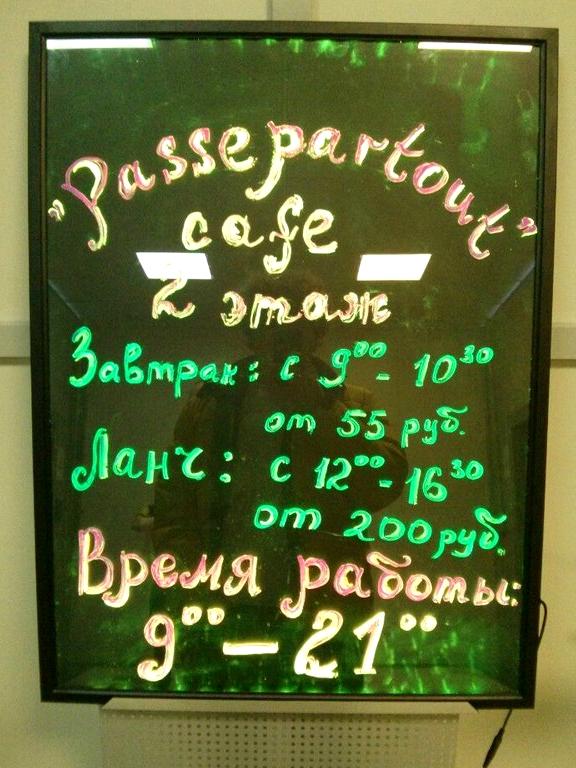 "Passepartout"
cafe
2 этаж
Завтрак: с 9⁰⁰ - 10³⁰
от 55 руб.
Ланч: с 12⁰⁰ - 16³⁰
от 200 руб.
Время работы:
9⁰⁰ — 21⁰⁰